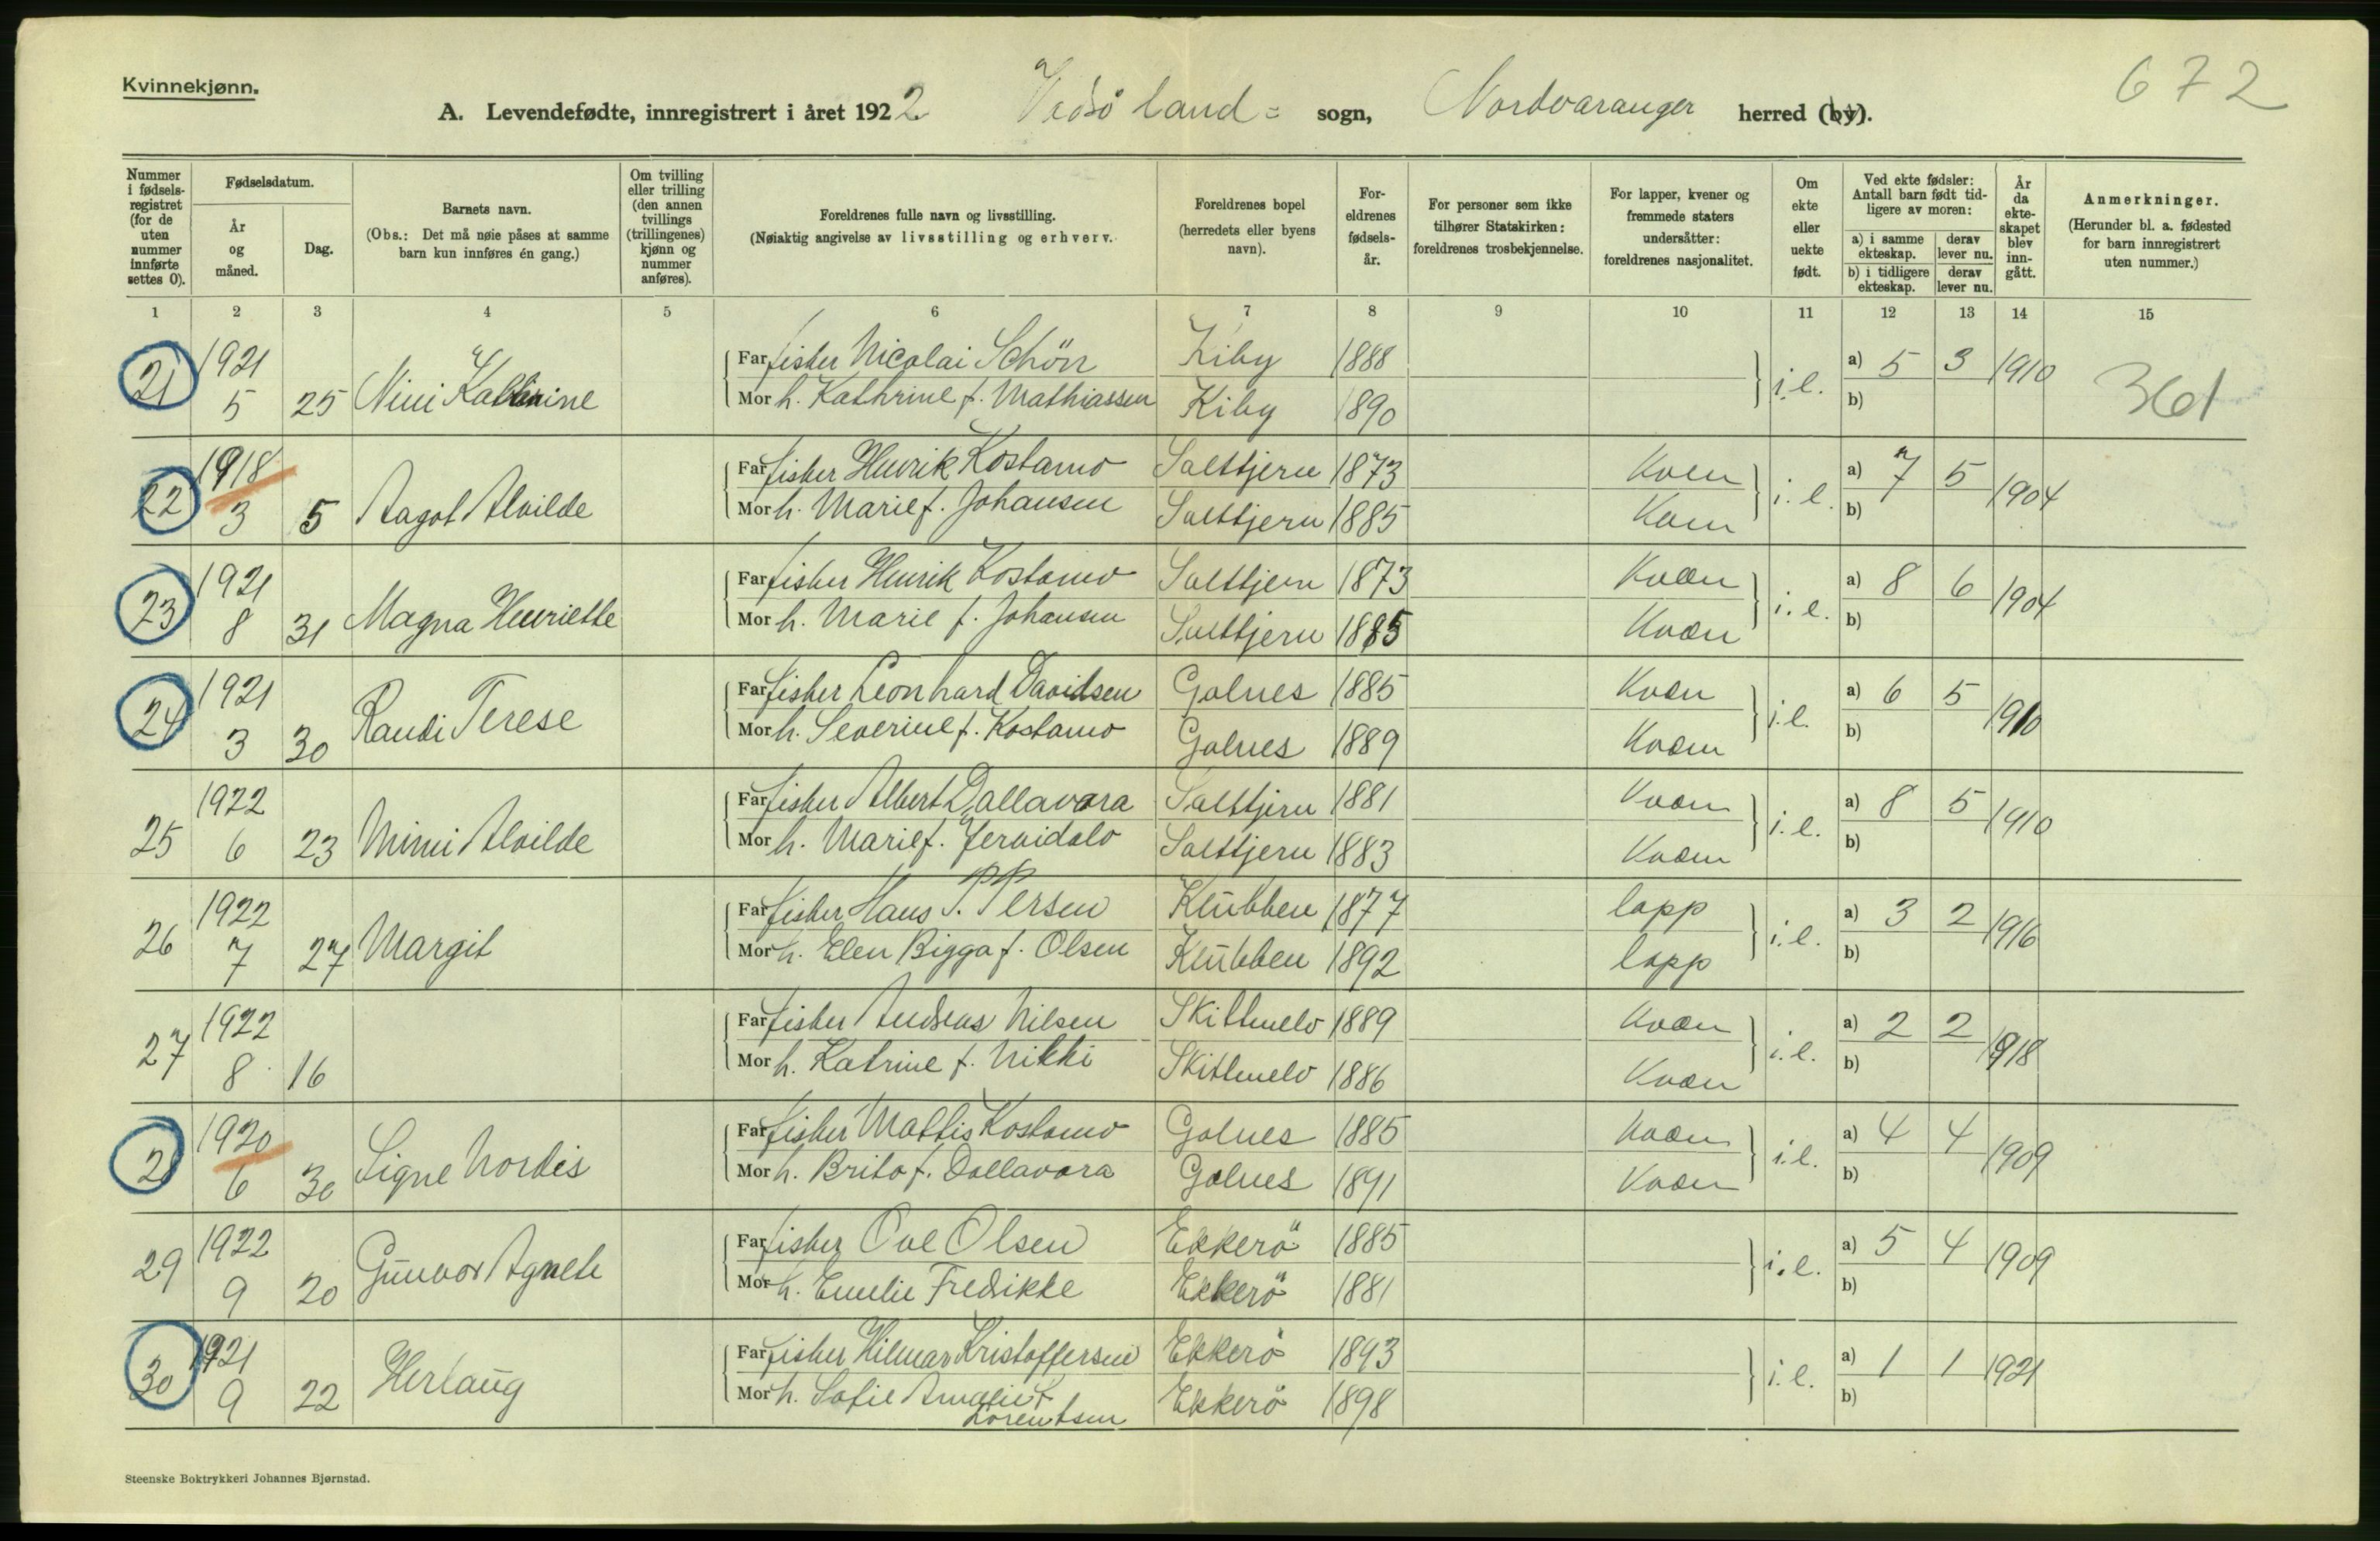 Kvinnekjønn.
672
A. Levendefødte, innregistrert i året 1922. Vadsö land= sogn, Nordvaranger herred (by).
Nummer i fødselsregistret (for de uten nummer innførte settes 0).
Fødselsdatum.
År og måned.
Dag.
Barnets navn.
(Obs.: Det må nøie påses at samme barn kun innføres én gang.)
Om tvilling eller trilling (den annen tvillings (trillingenes) kjønn og nummer anføres).
Foreldrenes fulle navn og livsstilling.
(Nøiaktig angivelse av livsstilling og erhverv.
Foreldrenes bopel (herredets eller byens navn).
Foreldrenes fødselsår.
For personer som ikke tilhører Statskirken: foreldrenes trosbekjennelse.
For lapper, kvener og fremmede staters undersåtter: foreldrenes nasjonalitet.
Om ekte eller uekte født.
Ved ekte fødsler: Antall barn født tidligere av moren:
a) i samme ekteskap. derav lever nu.
b) i tidligere ekteskap. derav lever nu.
År da ekteskapet blev inngått.
Anmerkninger.
(Herunder bl. a. fødested for barn innregistrert uten nummer.)
1 2 3 4 5 6 7 8 9 10 11 12 13 14 15
21 1921 5 25 Nini Kathrine Far fisker Nicolai Schön Kiby 1888 i.e. a) 5 3 1910 361
Mor h. Kathrine f. Mathiassen Kiby 1890 b)
22 1918 3 5 Aagot Alvilde Far fisker Henrik Kostamo Salttjern 1873 Kvæn i.e. a) 7 5 1904
Mor h. Marie f. Johansen Salttjern 1885 Kvæn b)
23 1921 8 31 Magna Henriette Far fisker Henrik Kostamo Salttjern 1873 Kvæn i.e. a) 8 6 1904
Mor h. Marie f. Johansen Salttjern 1885 Kvæn b)
24 1921 3 30 Randi Terese Far fisker Leonhard Davidsen Golnes 1885 Kvæn i.e. a) 6 5 1910
Mor h. Severine f. Kostamo Golnes 1889 Kvæn b)
25 1922 6 23 Mimi Alvilde Far fisker Albert Dallavara Salttjern 1881 Kvæn i.e. a) 8 5 1910
Mor h. Marie f. Jervidalo Salttjern 1883 Kvæn b)
26 1922 7 27 Margit Far fisker Hans P. Persen Klubben 1877 lapp i.e. a) 3 2 1916
Mor h. Elen Bigga f. Olsen Klubben 1892 lapp b)
27 1922 8 16 Far fisker Andreas Nilsen Skittnelv 1889 Kvæn i.e. a) 2 2 1918
Mor h. Katrine f. Nikki Skittnelv 1886 Kvæn b)
28 1920 6 30 Signe Nordis Far fisker Mattis Kostamo Golnes 1885 Kvæn i.e. a) 4 4 1909
Mor h. Brita f. Dallavara Golnes 1891 Kvæn b)
29 1922 9 20 Gunvor Agnete Far fisker Ove Olsen Ekkerö 1885 i.e. a) 5 4 1909
Mor h. Emelie Fredikke Ekkerö 1881 b)
30 1921 9 22 Herlaug Far fisker Hilmar Kristoffersen Ekkerö 1893 i.e. a) 1 1 1921
Mor h. Sofie Amalie f. Lorentsen Ekkerö 1898 b)
Steenske Boktrykkeri Johannes Bjørnstad.